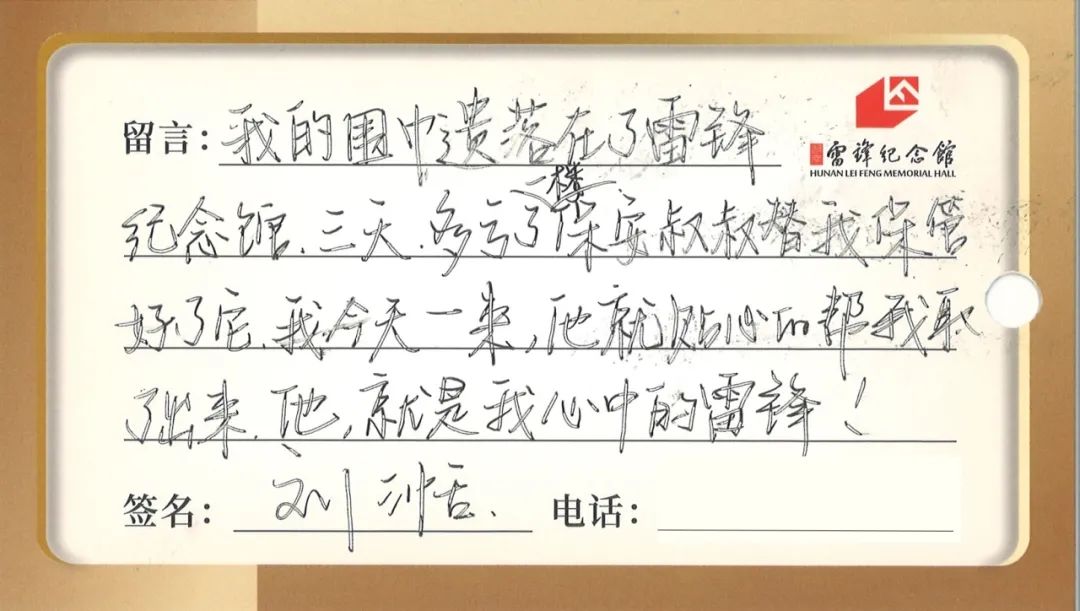 留言：我的围巾遗落在了雷锋
雷锋纪念館
HUNAN LEI FENG MEMORIAL HALL
纪念馆、三天、多亏了一楼保安叔叔替我保管
好了它、我今天一来，他就贴心的帮我取
了出来、他，就是我心中的雷锋！
签名：刘
电话：